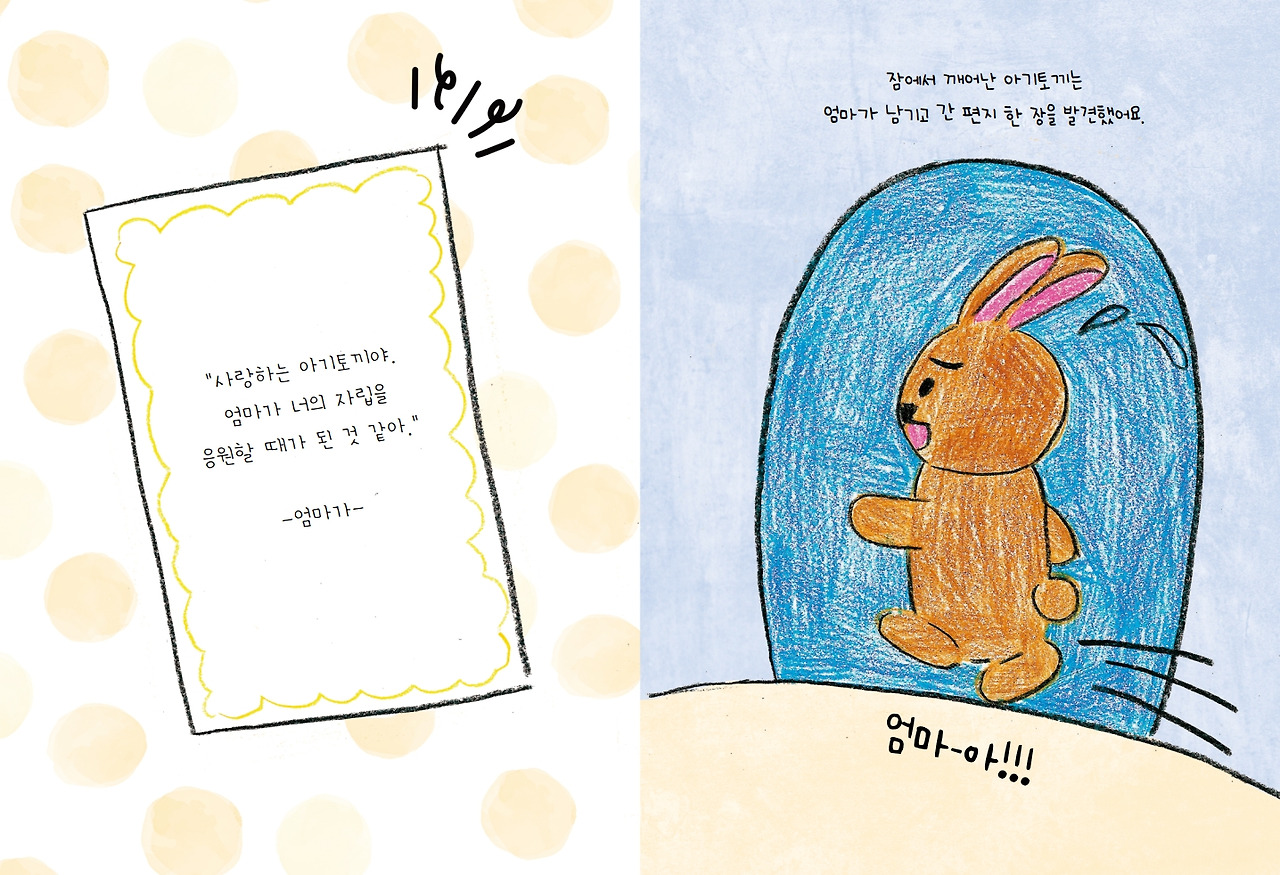 "사랑하는 아기토끼야.
엄마가 너의 자립을
응원할 때가 된 것 같아."
-엄마가-
잠에서 깨어난 아기토끼는
엄마가 남기고 간 편지 한 장을 발견했어요.
엄마-아!!!